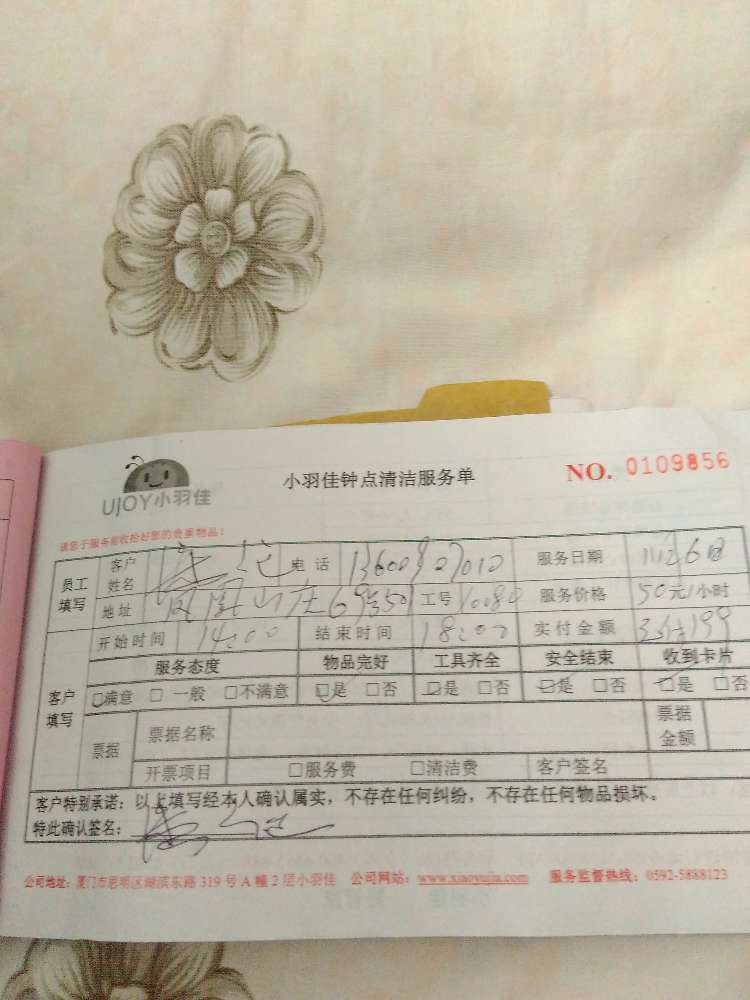 UJOY小羽佳
小羽佳钟点清洁服务单
NO. 0109856
请您于服务前收拾好您的贵重物品!
员工填写 客户姓名 电话 服务日期 11月26日
地址 凤凰山庄69号501 工号 10080 服务价格 50元/小时
客户填写 开始时间 14:00 结束时间 18:00 实付金额
服务态度 物品完好 工具齐全 安全结束 收到卡片
□满意 □一般 □不满意 □是 □否 □是 □否 □是 □否 □是 □否
票据 票据名称 票据金额
开票项目 □服务费 □清洁费 客户签名
客户特别承诺:以上填写经本人确认属实,不存在任何纠纷,不存在任何物品损坏。
特此确认签名:
公司地址:厦门市思明区湖滨东路 319 号 A 幢 2 层小羽佳 公司网站:www.xiaoyujia.com 服务监督热线:0592-5888123